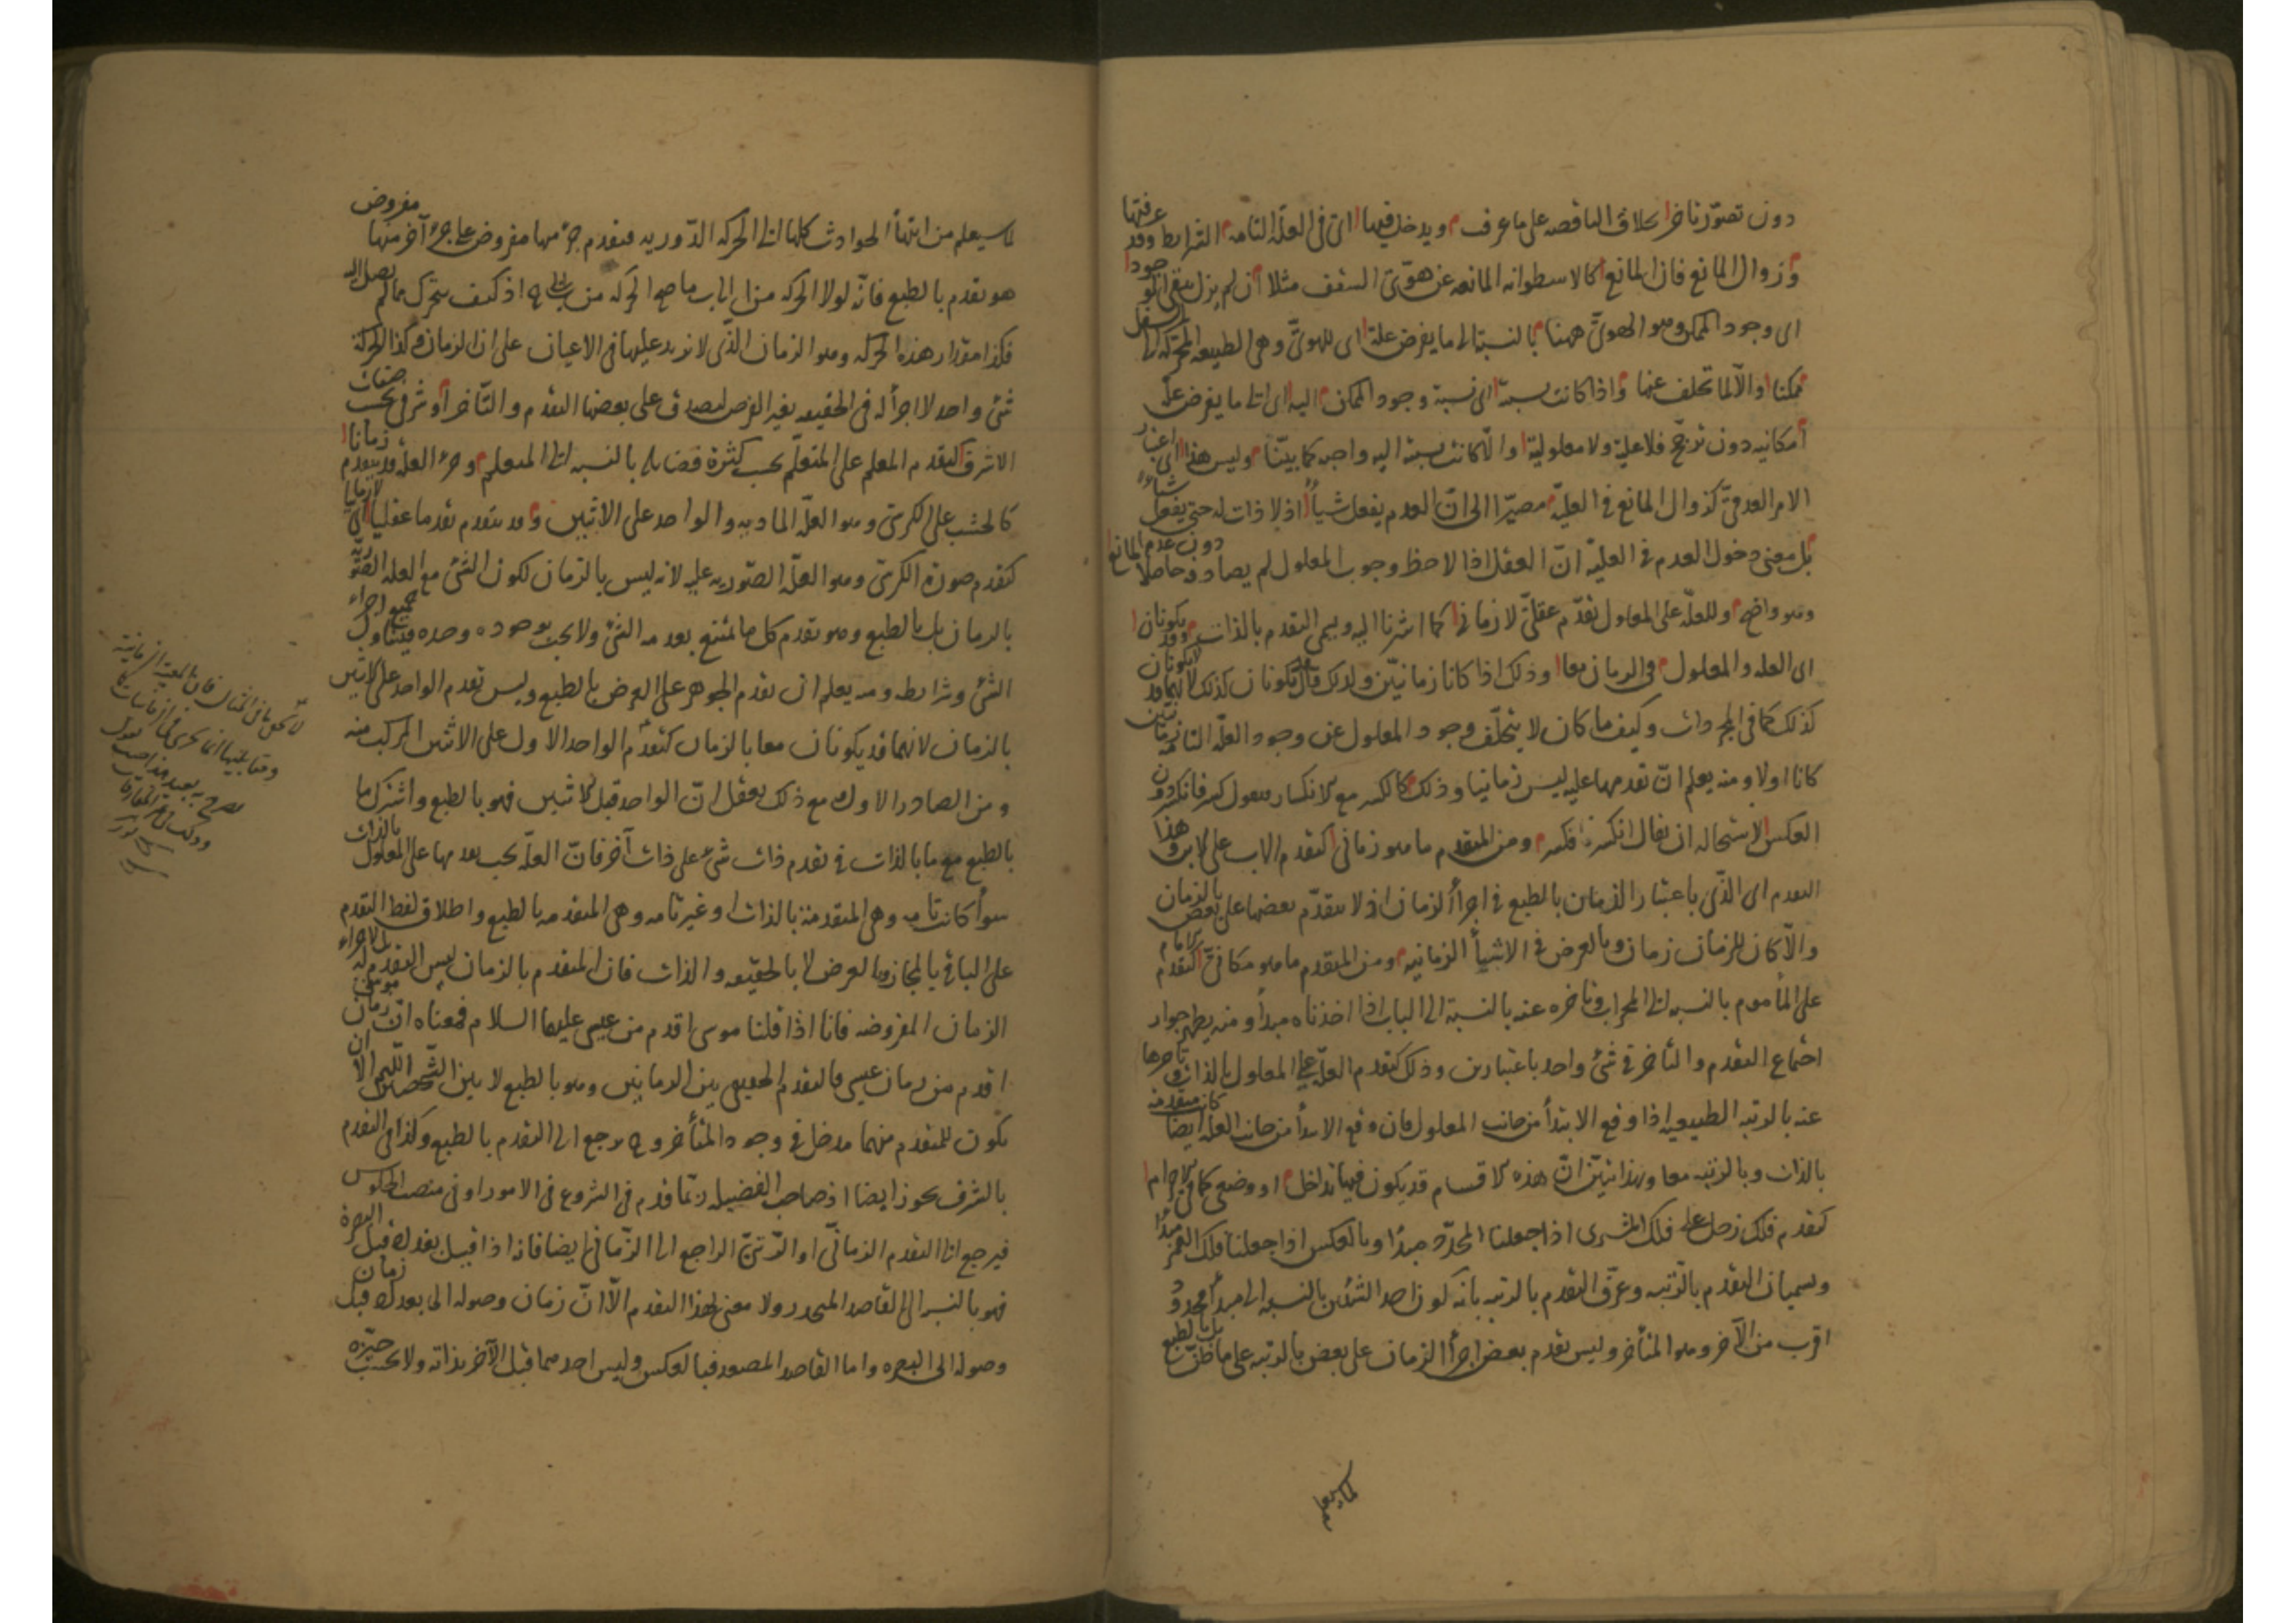 دون تصوّر تأخر بخلاف الناقصه على ما عرف ويدخل فيها اى فى العلّة التامه الشرايط وقد عرفتها
وزوال المانع فان المانع كالاسطوانه المانعه عن هوىّ السقف مثلا ان لم يزل يبقى الوجود
اى وجود الممكن وهو الهوىّ ههنا بالنسبة الى ما يفرض علة اى للهوىّ وهى الطبيعه المحركه الى السفل
ممكنا والّا لما تخلف عنها واذا كانت نسبته اى نسبة وجود الممكن اليه اى الى ما يفرض علّة
امكانيه دون ترجّح فلا علية ولا معلولية والّا كانت نسبته اليه واجبه كما بيّنّا وليس هذا اى اعتبار
الامر العدمىّ كزوال المانع فى العليّة مصيرا الى انّ العدم يفعل شيأ اذ لا ذات له حتى يفعل شياء
بل معنى دخول العدم فى العليّة انّ العقل اذا لاحظ وجوب المعلول لم يصادفه حاصلا دون عدم المانع
وهو واضح وللعلّة على المعلول تقدّم عقلىّ لا زمانى كما اشرنا اليه ويسمى التقدم بالذات وقد يكونان
اى العله والمعلول فى الزمان معا وذلك اذا كانا زمانيّين ولذلك قال قد يكونان كذلك لانهما قد لا يكونان
كذلك كما فى المجردات وكيف ما كان لا يتخلّف وجود المعلول عن وجود العلّة التامه زمانيّين
كانا اولا ومنه يعلم انّ تقدمها عليه ليس زمانيا وذلك كالكسر مع الانكسار فنقول كسر فانكسر دون
العكس لاستحاله ان يقال انكسر فكسر ومن المتقدم ما هو زمانى كتقدم الاب على الابن وهذا
التقدم اى الذّى باعتبار الزمان بالطبع فى اجزأ الزمان اذ لا يتقدّم بعضها على بعض بالزمان
والّا كان للزمان زمان وبالعرض فى الاشيأ الزمانيه ومن المتقدم ما هو مكانىّ كتقدم الامام
على المأموم بالنسبه الى المحراب وتاخره عنه بالنسبة الى الباب اذا اخذناه مبدأ ومنه يظهر جواز
اجتماع التقدم والتأخر فى شئ واحد باعتبارين وذلك كتقدم العلّة على المعلول بالذات وتأخرها
عنه بالرتبه الطبيعيه اذا وقع الابتدأ من جانب المعلول فان وقع الابتدأ من جانب العله كانت متقدمة ايضا
بالذات وبالرتبه معا وبهذا تبيّن انّ هذه الاقسام قد يكون فيها تداخل او وضعى كما فى الاجرام
كتقدم فلك زحل على فلك المشترى اذا جعلنا المحدّد مبدأ وبالعكس اذا جعلنا فلك القمر مبدأ
ويسميان التقدم بالرّتبه وعرّف التقدم بالرتبه بانه كون احد الشئين بالنسبه الى مبدأ محدود
اقرب من الآخر وهو المتأخر وليس تقدم بعض اجزأ الزمان على بعض بالرتبه على ما ظنّ بل بالطبع
لما سيعلم
لما سيعلم من انتهأ الحوادث كلها الى الحركه الدّوريه فتقدم جزء منها مفروض على جزء آخر منها مفروض
هو تقدم بالطبع فانّه لولا الحركه من ا الى ب ما صح الحركه من ب الى ج اذ كيف يتحرك عما لم يصل اليه
فكذا مقدار هذه الحركه وهو الزمان الذّى لا يزيد عليها فى الاعيان على ان الزمان وكذا الحركة
شئ واحد لا اجزأ له فى الحقيقه بغير الفرض ليصدق على بعضها التقدم والتّأخر أو شرفى بحسب صفات
الاشرف كتقدم المعلم على المتعلّم بحسب كثرة فضايله بالنسبه الى المتعلم وجزء العلّة قد يتقدم زمانا
كالخشب على الكرسّى وهو العلّة الماديه والواحد على الاثنين وقد يتقدم تقدما عقليا اى لا زمانيا
كتقدم صورة الكرسّى وهو العلّة الصّوريه عليه لانه ليس بالزمان لكون الشئ مع العله الصّوريّة
بالزمان بل بالطبع وهو تقدم كل ما يمتنع بعدمه الشئ ولا يجب بوجوده وحده فيتناول جميع اجزاء
الشئ وشرايطه ومنه يعلم ان تقدم الجوهر على العرض بالطبع وليس تقدم الواحد على الاثنين
بالزمان لانهما قد يكونان معا بالزمان كتقدم الواحد الاول على الاثنين المركب منه
ومن الصادر الاول مع ذلك يعقل انّ الواحد قبل الاثنين فهو بالطبع واشترك ما
بالطبع مع ما بالذات فى تقدم ذات شئ على ذات آخر فانّ العلّة يجب تقدمها على المعلول بالذات
سوأ كانت تامه وهى المتقدمة بالذات او غير تامه وهى المتقدمه بالطبع واطلاق لفظ التقدم
على الباقى بالمجاز وبالعرض لا بالحقيقه والذات فان المتقدم بالزمان ليس التقدم له بل لاجزاء
الزمان المفروضه فانا اذا قلنا موسى اقدم من عيسى عليهما السلام فمعناه انّ زمان موسى
اقدم من زمان عيسى فالتقدم الحقيقى بين الزمانين وهو بالطبع لا بين الشّخصين اللّهم الّا ان
يكون للمتقدم منهما مدخل فى وجود المتأخر و ح يرجع الى التقدم بالطبع وكذا فى التقدم
بالشرف يجوز ايضا اذ صاحب الفضيله ربّما قدم فى الشروع فى الامور او فى منصب الجلوس
فيرجع الى التقدم الزمانّى او الرّتبىّ الراجع الى الزّمانى ايضا فانه اذا قيل بغداد قبل البصرة
فهو بالنسبه الى القاصد المنحدر ولا معنى لهذا التقدم الّا انّ زمان وصوله الى بغداد قبل زمان
وصوله الى البصره واما القاصد المصعد فبالعكس وليس احدهما قبل الآخر بذاته ولا بحسب حيّزه